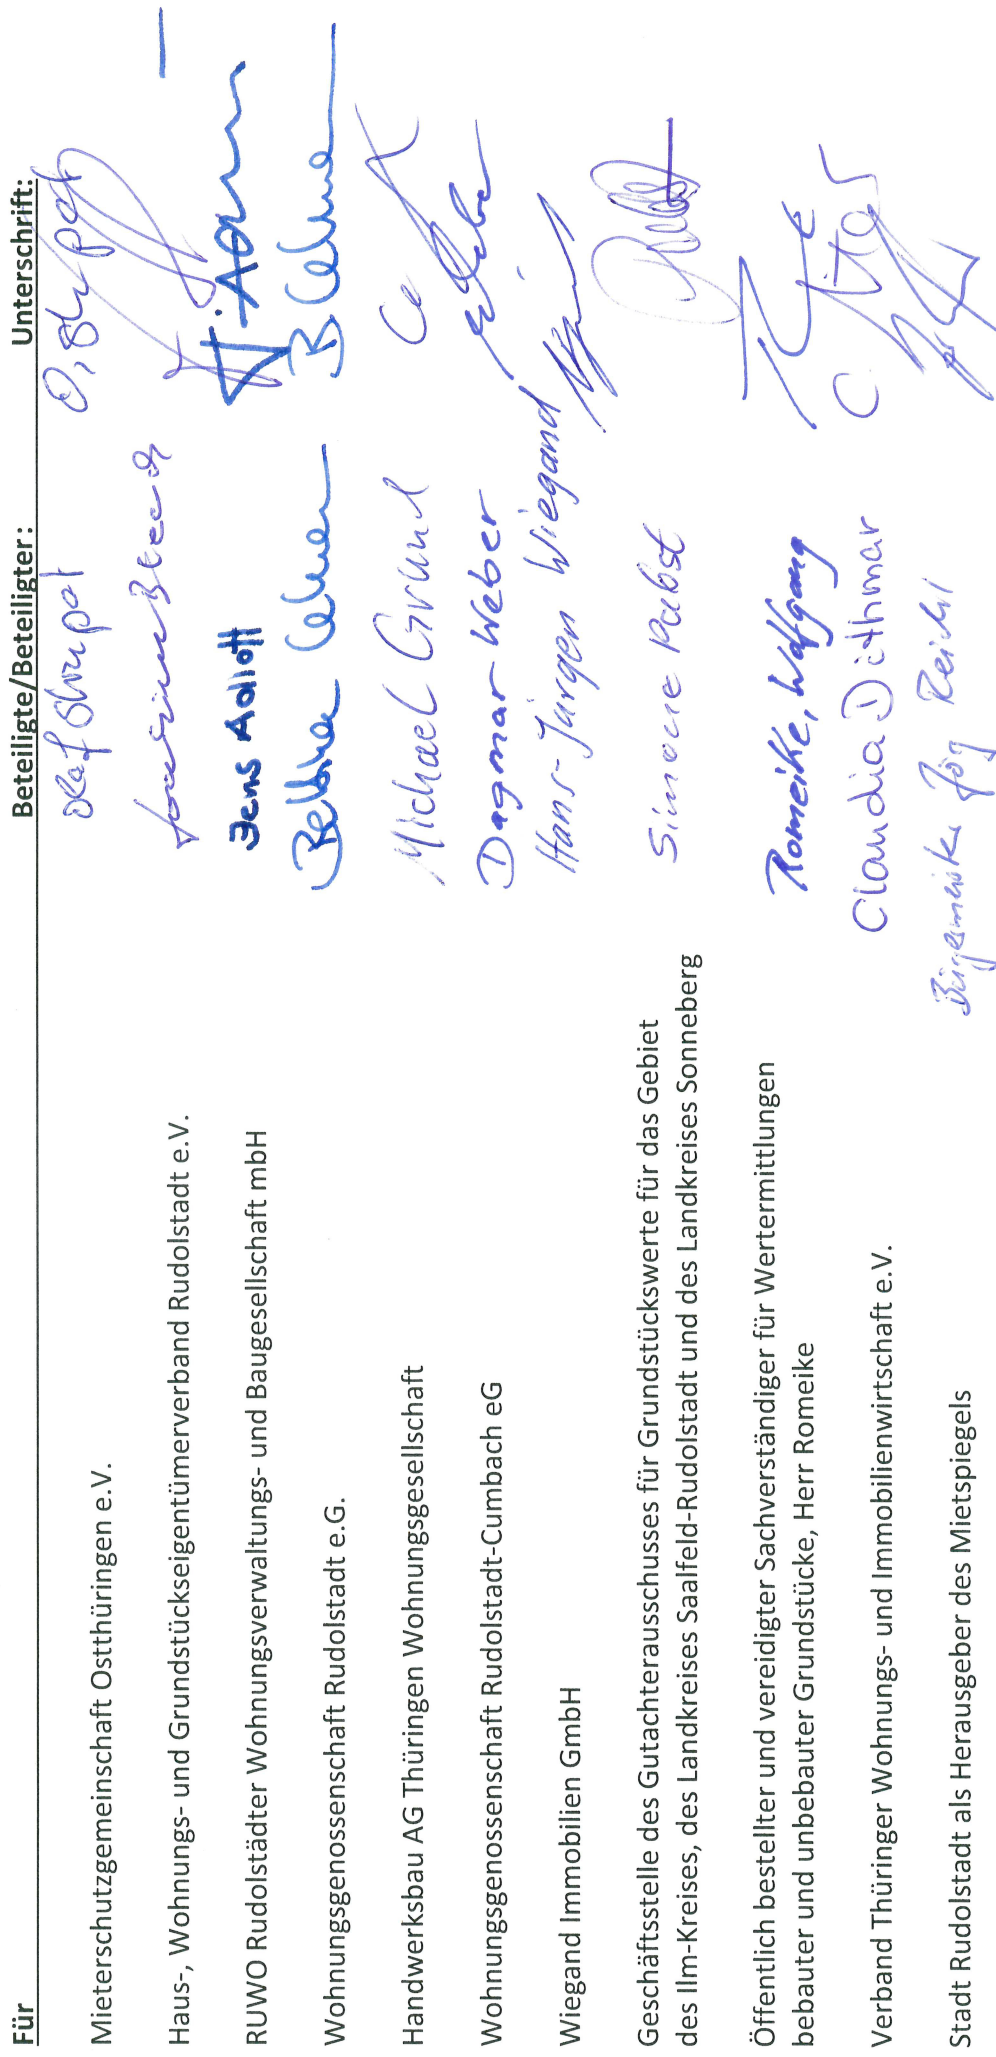 Für Beteiligte/Beteiligter: Unterschrift:
Mieterschutzgemeinschaft Ostthüringen e.V. Olaf Strupat O. Strupat
Haus-, Wohnungs- und Grundstückseigentümerverband Rudolstadt e.V.
RUWO Rudolstädter Wohnungsverwaltungs- und Baugesellschaft mbH Jens Adloff
Wohnungsgenossenschaft Rudolstadt e.G. Bettina
Handwerksbau AG Thüringen Wohnungsgesellschaft Michael Grund
Wohnungsgenossenschaft Rudolstadt-Cumbach eG Dagmar Weber
Wiegand Immobilien GmbH Hans-Jürgen Wiegand
Geschäftsstelle des Gutachterausschusses für Grundstückswerte für das Gebiet
des Ilm-Kreises, des Landkreises Saalfeld-Rudolstadt und des Landkreises Sonneberg Simone Pabst
Öffentlich bestellter und vereidigter Sachverständiger für Wertermittlungen
bebauter und unbebauter Grundstücke, Herr Romeike Romeike, Wolfgang
Verband Thüringer Wohnungs- und Immobilienwirtschaft e.V. Claudia Dithmar
Stadt Rudolstadt als Herausgeber des Mietspiegels Bürgermeister Jörg Reichl